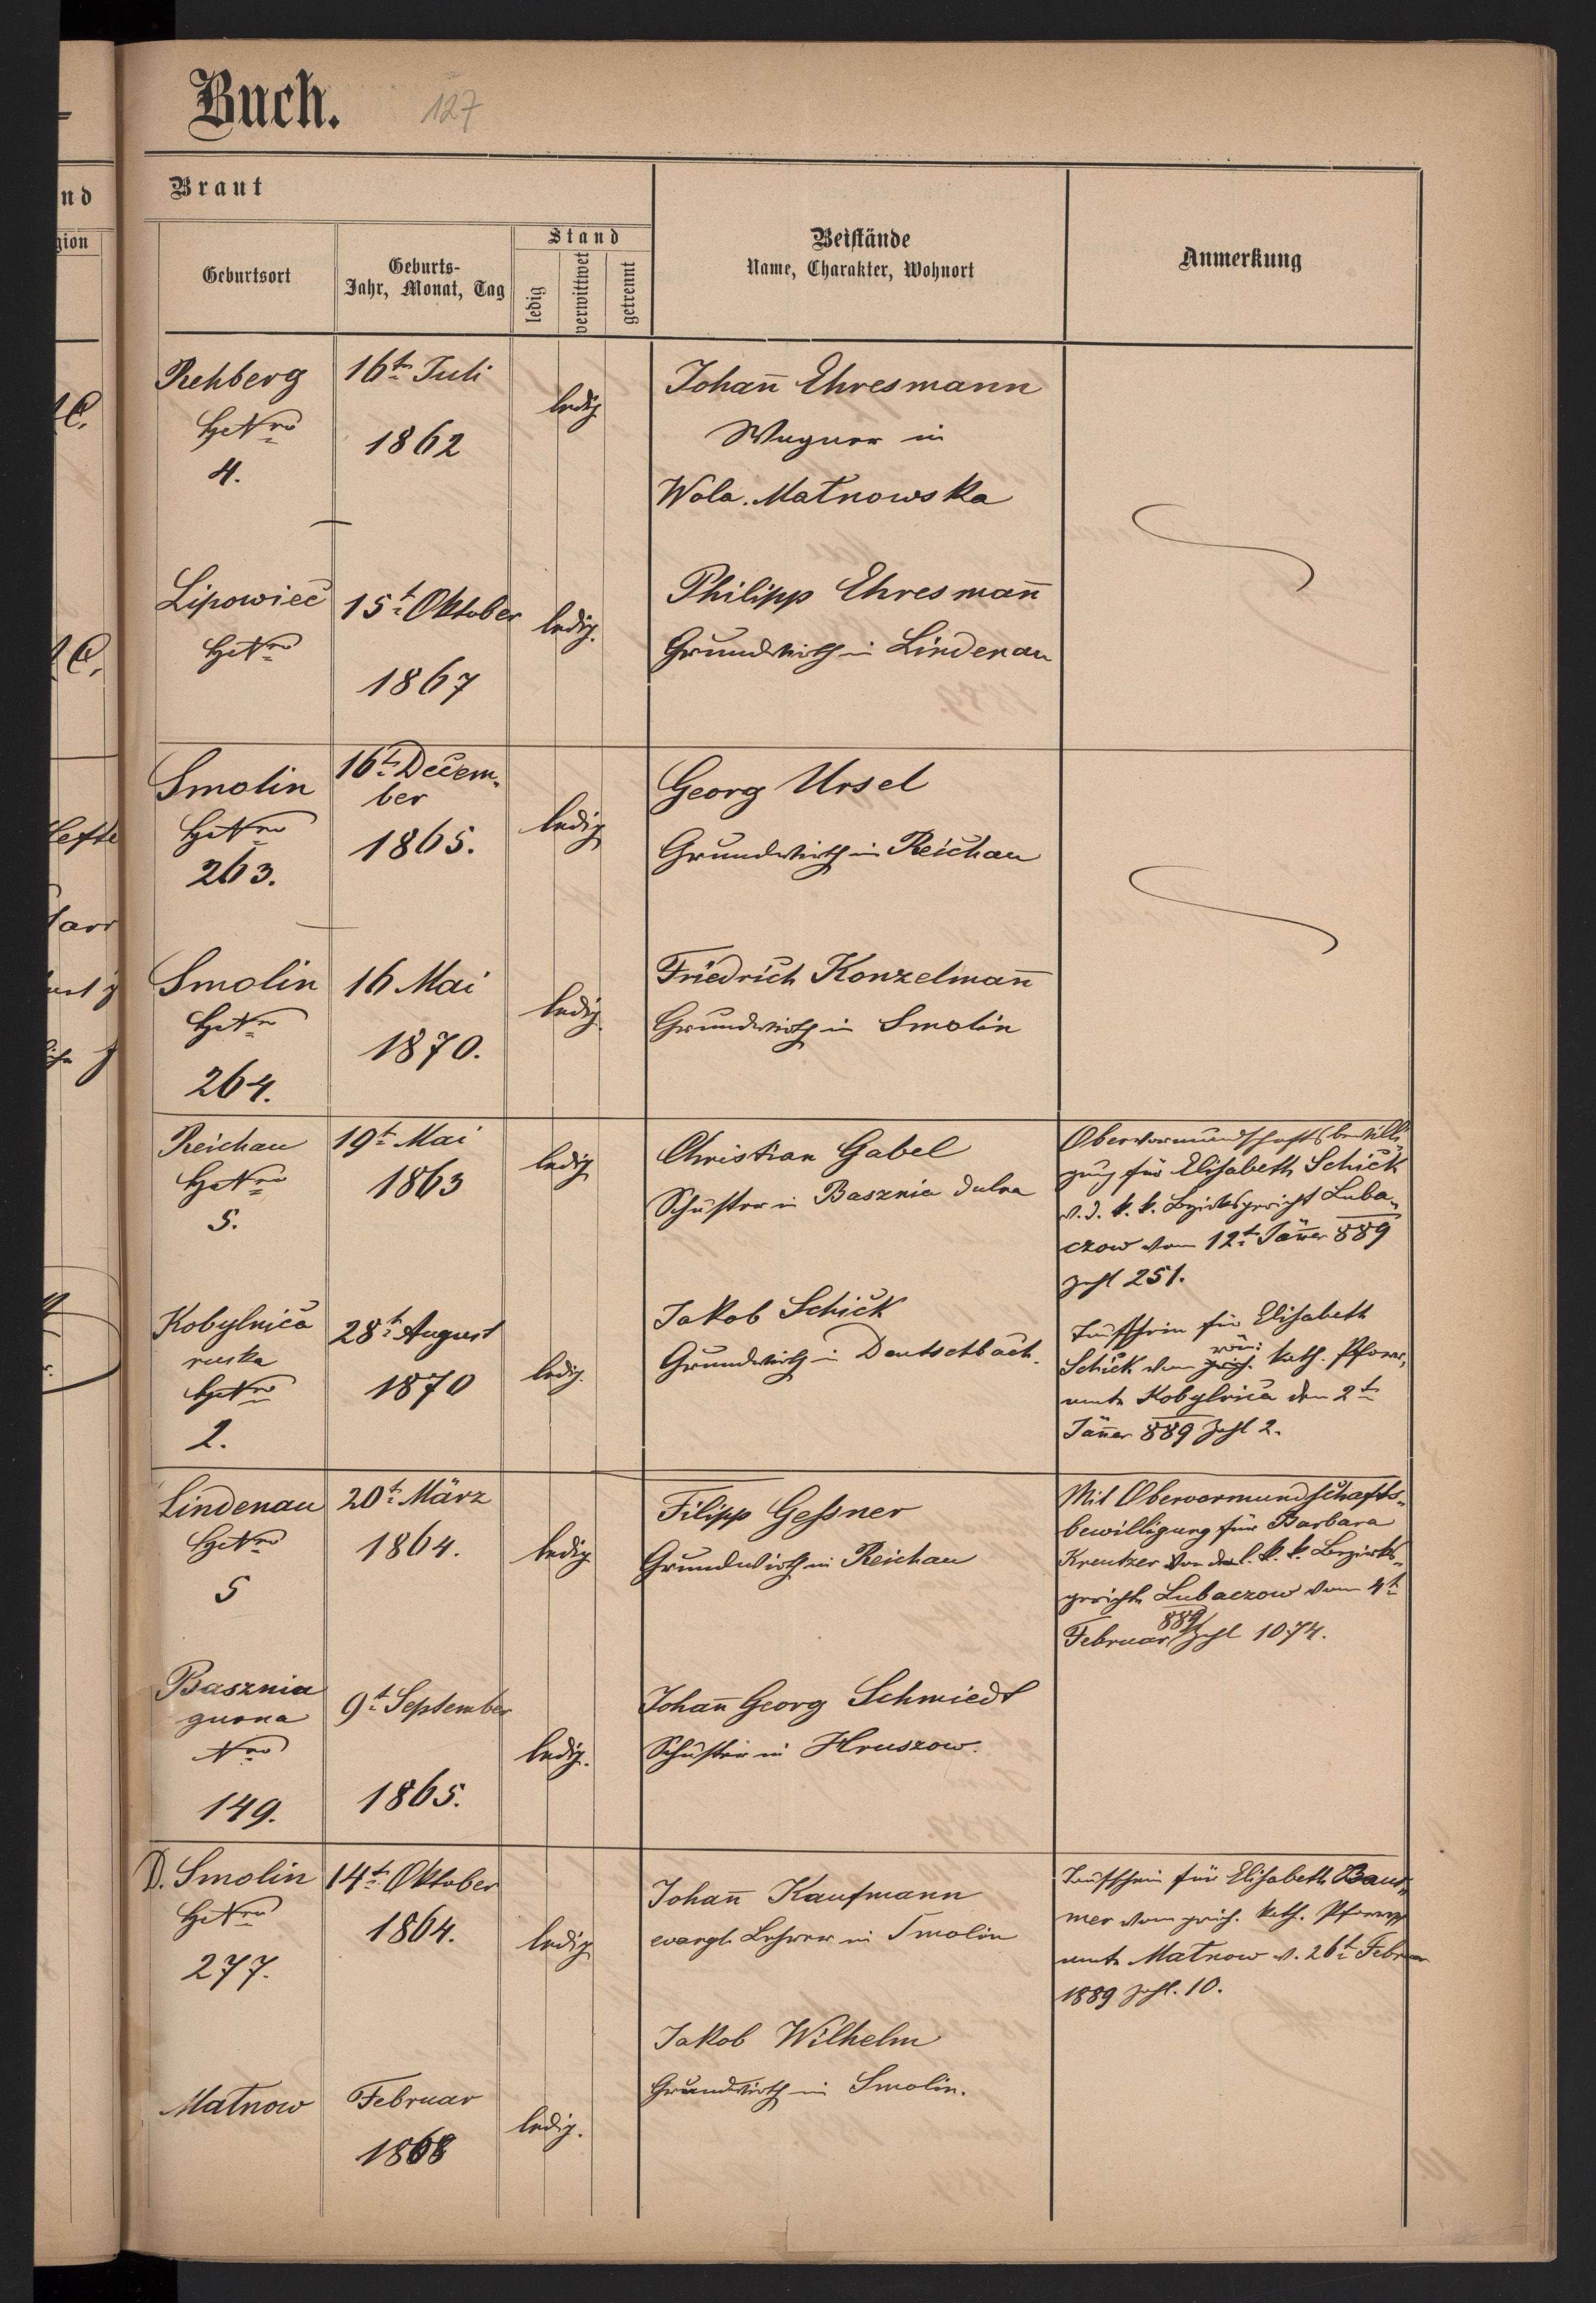 Buch. 127
Braut
Beistände
Name, Charakter, Wohnort
Anmerkung
Stand
Geburtsort
Geburts-
Jahr, Monat, Tag
ledig
verwittwet
getrennt
Rehberg
HsNro
4.
16t Juli
1862
ledig
Johan̄ Ehresmann
Wagner in
Wola. Matnowska
Lipowiec
HsNro
15t Oktober
1867
ledig.
Philipp Ehresman̄
Grundwirth in Lindenau
Smolin
HsNro
263.
16t Decem-
ber
1865.
ledig
Georg Ursel
Grundwirth in Reichau
Smolin
HsNro
264.
16 Mai
1870.
ledig.
Friedrich Konzelman̄
Grundwirth in Smolin
Reichau
HsNro
5.
19t Mai
1863
ledig
Christian Gabel
Schuster in Basznia dulna
Obervormundschaftsbewilli-
gung für Elisabeth Schick
v. d. k. k. Bezirksgericht Luba-
czow vom 12t Jän̄er 889
Zahl 251.
Kobylnica
ruska
HsNro
2.
28t August
1870
ledig.
Jakob Schick
Grundwirth in Deutschbach.
Taufschein für Elisabeth
Schick vom röm: kath. Pfarr-
amte Kobylnica den 2t
Jän̄er 889 Zahl 2.
Lindenau
HsNro
5
20t März
1864.
ledig
Filipp Gessner
Grundwirth in Reichau
Mit Obervormundschafts-
bewilligung für Barbara
Kreutzer von l. k. k. Bezirks-
gericht Lubaczow vom 4t
Februar 889 Zahl 1074.
Basznia
guona
Nro
149.
9t September
1865.
ledig.
Johan̄ Georg Schmiedt
Schuster in Hruszow.
D. Smolin
HsNro
277.
14t Oktober
1864.
ledig
Johan̄ Kaufmann
evangl. Lehrer in Smolin
Taufschein für Elisabeth Bau-
mer vom griech. kath. Pfarr-
amte Matnow v. 26t Februar
1889 Zahl. 10.
Jakob Wilhelm
Grundwirth in Smolin.
Matnow
Februar
1868
ledig.